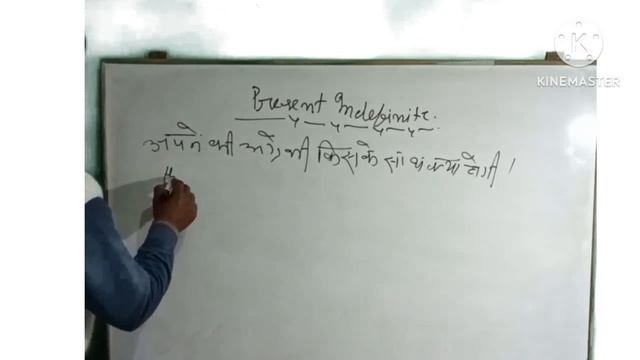 KINEMASTER
Present Indefinite.
अपने की अंग्रेजी किसके साथ क्या होगी ।
"